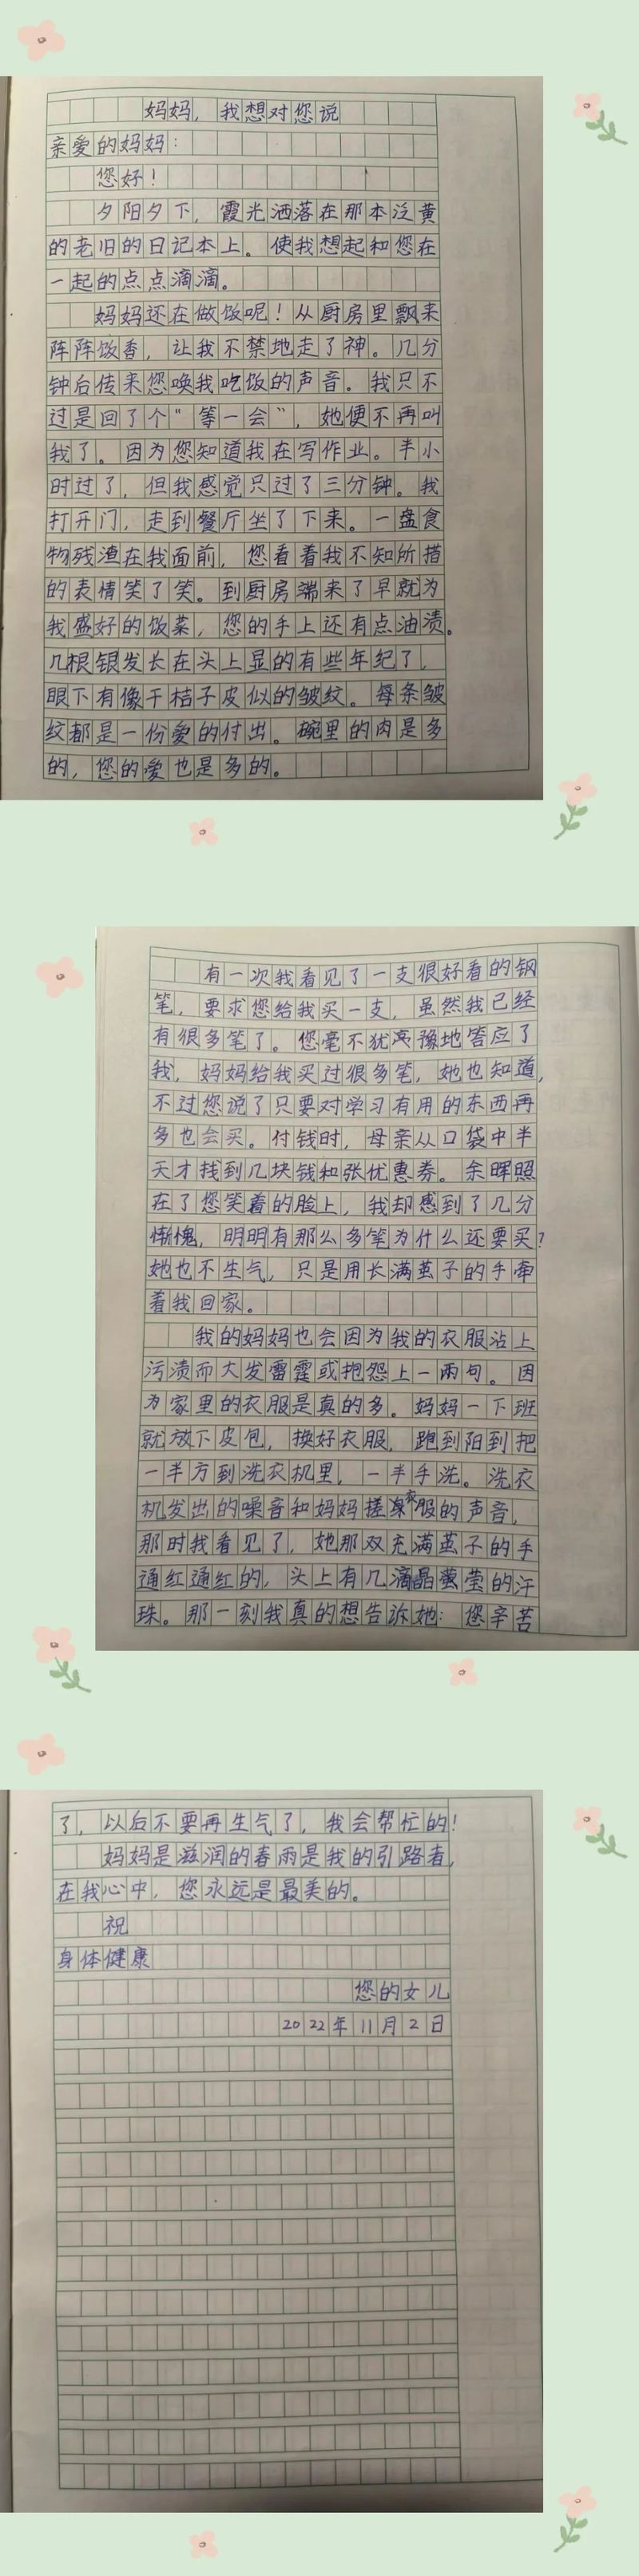 妈妈，我想对您说
亲爱的妈妈：
您好！
夕阳夕下，霞光洒落在那本泛黄
的老旧的日记本上。使我想起和您在
一起的点点滴滴。
妈妈还在做饭呢！从厨房里飘来
阵阵饭香，让我不禁地走了神。几分
钟后传来您唤我吃饭的声音。我只不
过是回了个“等一会”，她便不再叫
我了。因为您知道我在写作业。半小
时过了，但我感觉只过了三分钟。我
打开门，走到餐厅坐了下来。一盘食
物残渣在我面前，您看着我不知所措
的表情笑了笑。到厨房端来了早就为
我盛好的饭菜，您的手上还有点油渍。
几根银发长在头上显的有些年纪了，
眼下有像干桔子皮似的皱纹。每条皱
纹都是一份爱的付出。碗里的肉是多
的，您的爱也是多的。
有一次我看见了一支很好看的钢
笔，要求您给我买一支，虽然我已经
有很多笔了。您毫不犹豫地答应了
我，妈妈给我买过很多笔，她也知道，
不过您说了只要对学习有用的东西再
多也会买。付钱时，母亲从口袋中半
天才找到几块钱和张优惠券。余晖照
在了您笑着的脸上，我却感到了几分
惭愧，明明有那么多笔为什么还要买？
她也不生气，只是用长满茧子的手牵
着我回家。
我的妈妈也会因为我的衣服沾上
污渍而大发雷霆或抱怨上一两句。因
为家里的衣服是真的多。妈妈一下班
就放下皮包，换好衣服，跑到阳到把
一半方到洗衣机里，一半手洗。洗衣
机发出的噪音和妈妈搓衣服的声音，
那时我看见了，她那双充满茧子的手
通红通红的，头上有几滴晶莹莹的汗
珠。那一刻我真的想告诉她：您辛苦
了，以后不要再生气了，我会帮忙的！
妈妈是滋润的春雨是我的引路者，
在我心中，您永远是最美的。
祝
身体健康
您的女儿
2022年11月2日